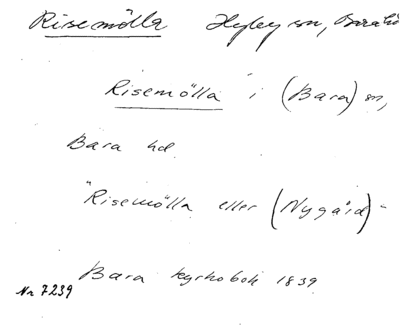 Risemölla Hyby sn, Bara hd
Risemölla i (Bara) sn,
Bara hd.
"Risemölla eller (Nygård)"
Bara kyrkobok 1839
Nr 7239